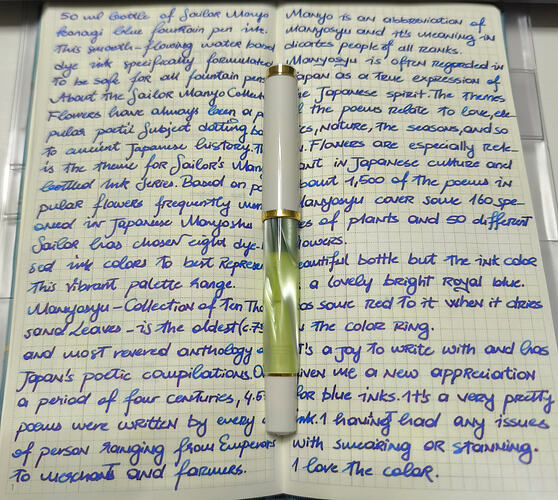 50 ml bottle of Sailor Manyo
Konagi blue fountain pen ink.
This smooth-flowing water based
dye ink specifically formulated
to be safe for all fountain pens
About the Sailor Manyo Collect
Flowers have always been a p
pular poetic subject dotting ba
to ancient Japanese history. Th
is the theme for Sailor's Man
bottled ink series. Based on po
pular flowers frequently men
oned in Japanese Manyoshu
Sailor has chosen eight dye-b
sed ink colors to best represe
this vibrant palette range.
Manyosyu-Collection of Ten Tho
sand Leaves-is the oldest (c.75
and most revered anthology o
Japan's poetic compilations. O
a period of four centuries, 4.5
poems were written by every
of person ranging from Emperors
to merchant and farmers.
Manyo is an abbreviation of
Manyosyu and it's meaning in
dicates people of all ranks.
Manyosyu is often regarded in
Japan as a true expression of
the Japanese spirit. The themes
of the poems relate to love, ele
ics, nature, the seasons, and so
. Flowers are especially rele-
ant in Japanese culture and
bout 1,500 of the poems in
anyosyu cover some 160 spe-
es of plants and 50 different
lowers.
eautiful bottle but the ink color
a lovely bright Royal blue.
as some red to it when it dries
the color ring.
t's a joy to write with and has
iven me a new appreciation
for blue inks. It's a very pretty
ink. I having't had any issues
with smearing or staining.
I love the color.